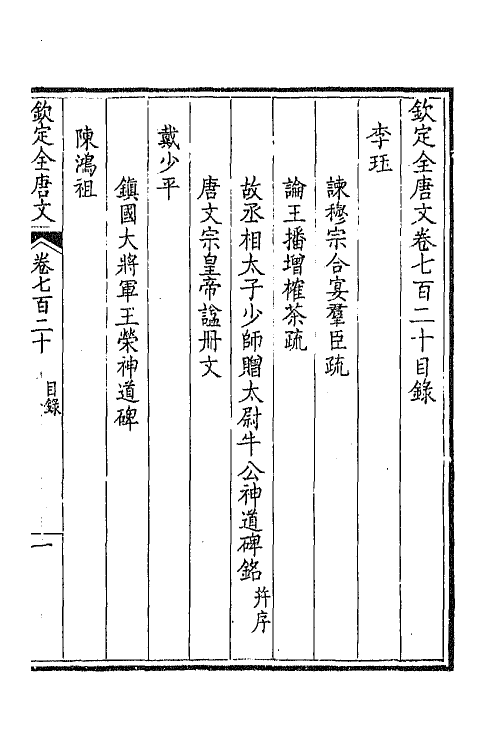 欽定全唐文卷七百二十目錄
李珏
諫穆宗合宴羣臣疏
論王播增榷茶疏
故丞相太子少師贈太尉牛公神道碑銘 并序
唐文宗皇帝諡冊文
戴少平
鎮國大將軍王榮神道碑
陳鴻祖
欽定全唐文 卷七百二十 目錄 一